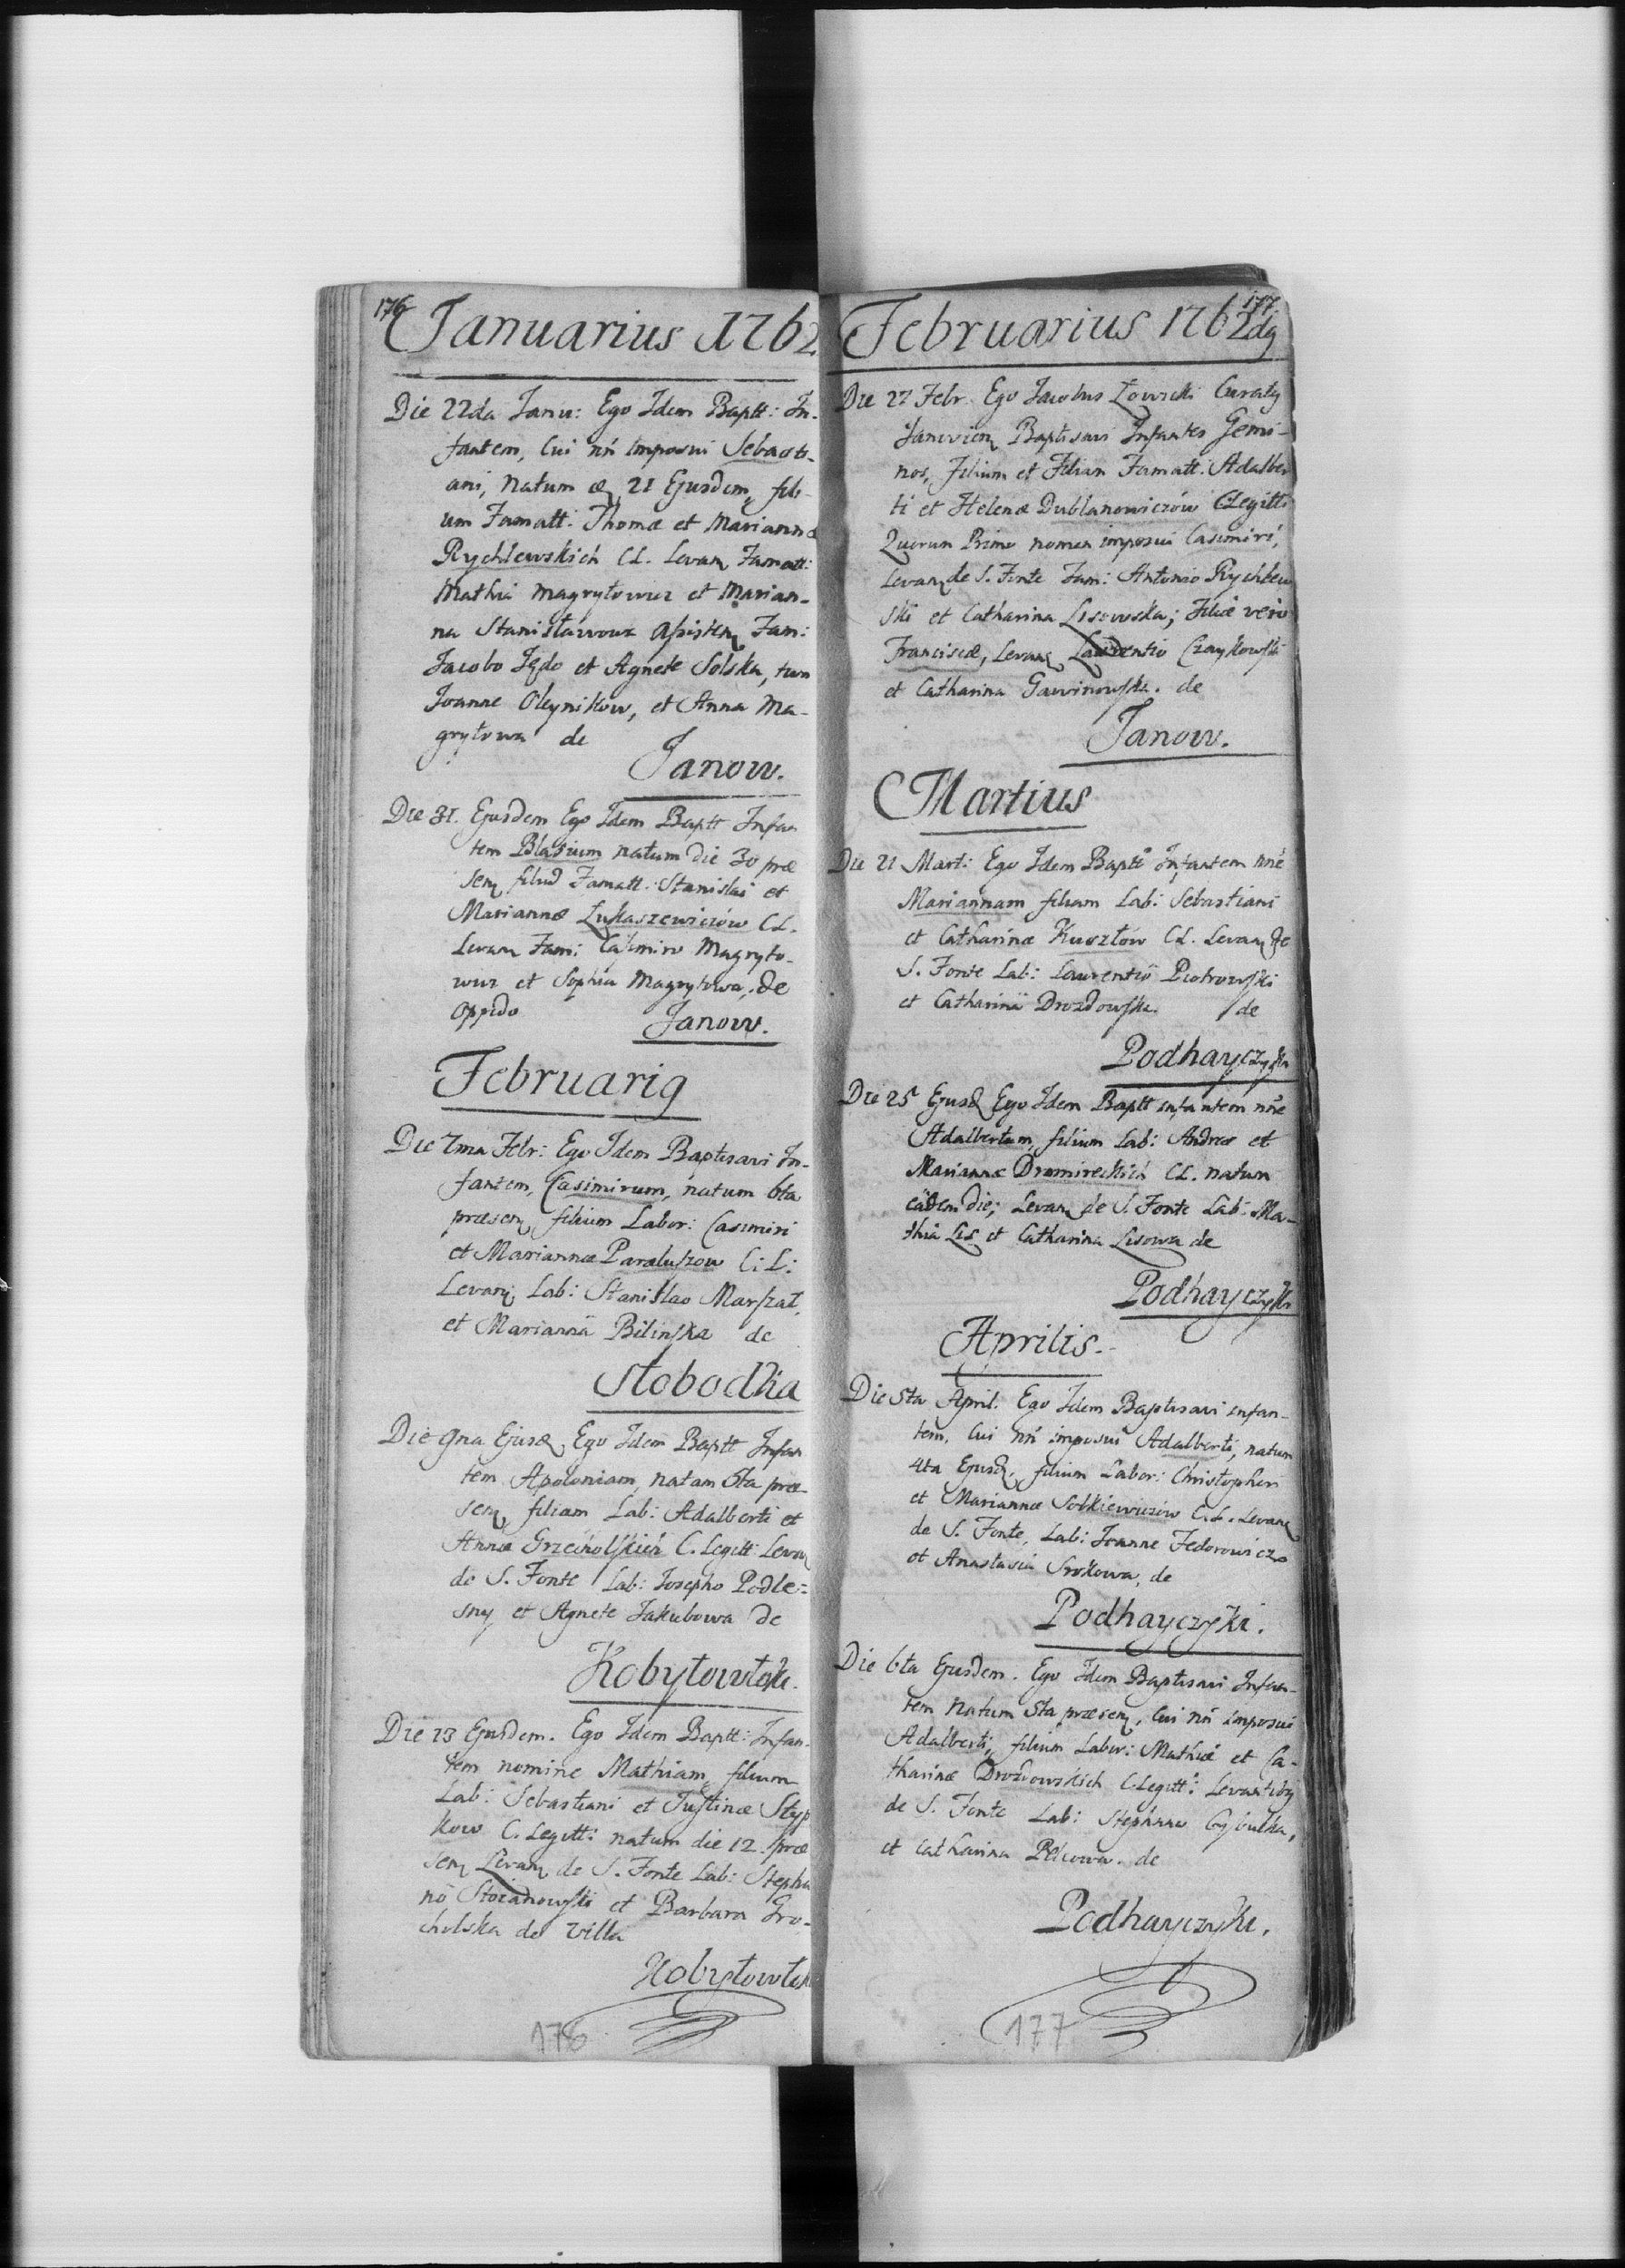 176
Januarius 1762
Die 22da Janu: Ego Idem Baptt: In-
fantem, Cui nn̄ imposui Sebasti-
ani, natum 21 Ejusdem, fili-
um Famatt: Thomæ et Mariannæ
Rychlewskich CL. Levan Famatt:
Mathia Magrytowicz et Marian-
na Stanisławowa Assisten Fam:
Jacobo Jędo et Agnete Solska, tum
Joanne Oleynikow, et Anna Ma-
grytowa de
Janow.
Die 31. Ejusdem Ego Idem Baptt Infan
tem Blasium natum Die 30 præ
sen, Famatt. Stanislai et
Mariannæ Łukaszewiczów CL.
Levan Fam: Casimiro Magryto-
wicz et Sophia Magrytowa, de
oppido
Janow.
Februarig
Die 7ma Febr: Ego Idem Baptisavi In-
fantem, Casimirum, natum 6ta
præsen, filium Labor: Casimiri
et Mariannæ Paraluszow C: L:
Levan Lab: Stanislao Marszał,
et Marianna Bilinska de
Słobodka
Die 9na Ejusd, Ego Idem Baptt Infan
tem Apoloniam, natam 6ta præ-
sen, filiam Lab: Adalberti et
Annæ Grzecholskich C. Legitt: Levan
de S. Fonte Lab: Josepho Podle-
sny et Agnete Jakubowa de
Kobyłowłoki.
Die 13 Ejusdem. Ego Idem Baptt: Infan-
tem nomine Mathiam, filium
Lab: Sebastiani et Justinæ Styp
kow C. Legitt: natum die 12. præ
sen, Levan de S. Fonte Lab: Stepha
no Stoianowski et Barbara Gro-
cholska de Villa
Kobyłowłok
176
177
Februarius 1762dg
Die 27 Febr. Ego Jacobus Łowicki Curatg
Janovien Baptisavi Infantes Gemi-
nos, Filium et Filiam Famatt: Adalber
ti et Helenæ Dublanowiczów CLegitt:
Quorum Primo nomen imposui Casimiri,
Levan de S. Fonte Fam: Antonio Rychlew
ski et Catharina Lisowska; Filiæ vero
Franciscæ, Levan Laurentio Czaykowski
et Catharina Gawinowska. de
Janow.
Martius
Die 21 Mart: Ego Idem Baptt Infantem nn̄e
Mariannam filiam Lab: Sebastiani
et Catharinæ Kusztow CL. Levan de
S. Fonte Lab: Laurentio Piotrowski
et Catharina Drozdowska. de
Podhayczyka
Die 25 Ejusd Ego Idem Baptt infantem nn̄e
Adalbertum, filium Lab: Andreæ et
Mariannæ Dramireckich CL. natum
eadem die; Levan de S. Fonte Lab: Ma-
thia Lis et Catharina Lisowa de
Podhayczyki
Aprilis.
Die 5ta April. Ego Idem Baptisavi infan-
tem, Cui nn̄ imposui Adalberti, natum
4ta Ejusd, filium Labor: Christopheri
et Mariannæ Sobkiewiczów C. L. Levan
de S. Fonte, Lab: Joanne Fedorowicz
et Anastasia Srokowa, de
Podhayczyki.
Die 6ta Ejusdem. Ego Idem Baptisavi Infan-
tem Natum 5ta præsen, Cui nn̄ imposui
Adalberti, filium Labor: Mathiæ et Ca-
tharinæ Drozdowskich C Legitt: Levantibg
de S. Fonte Lab: Stephano Cybulka,
et Catharina de
Podhayczyki.
177